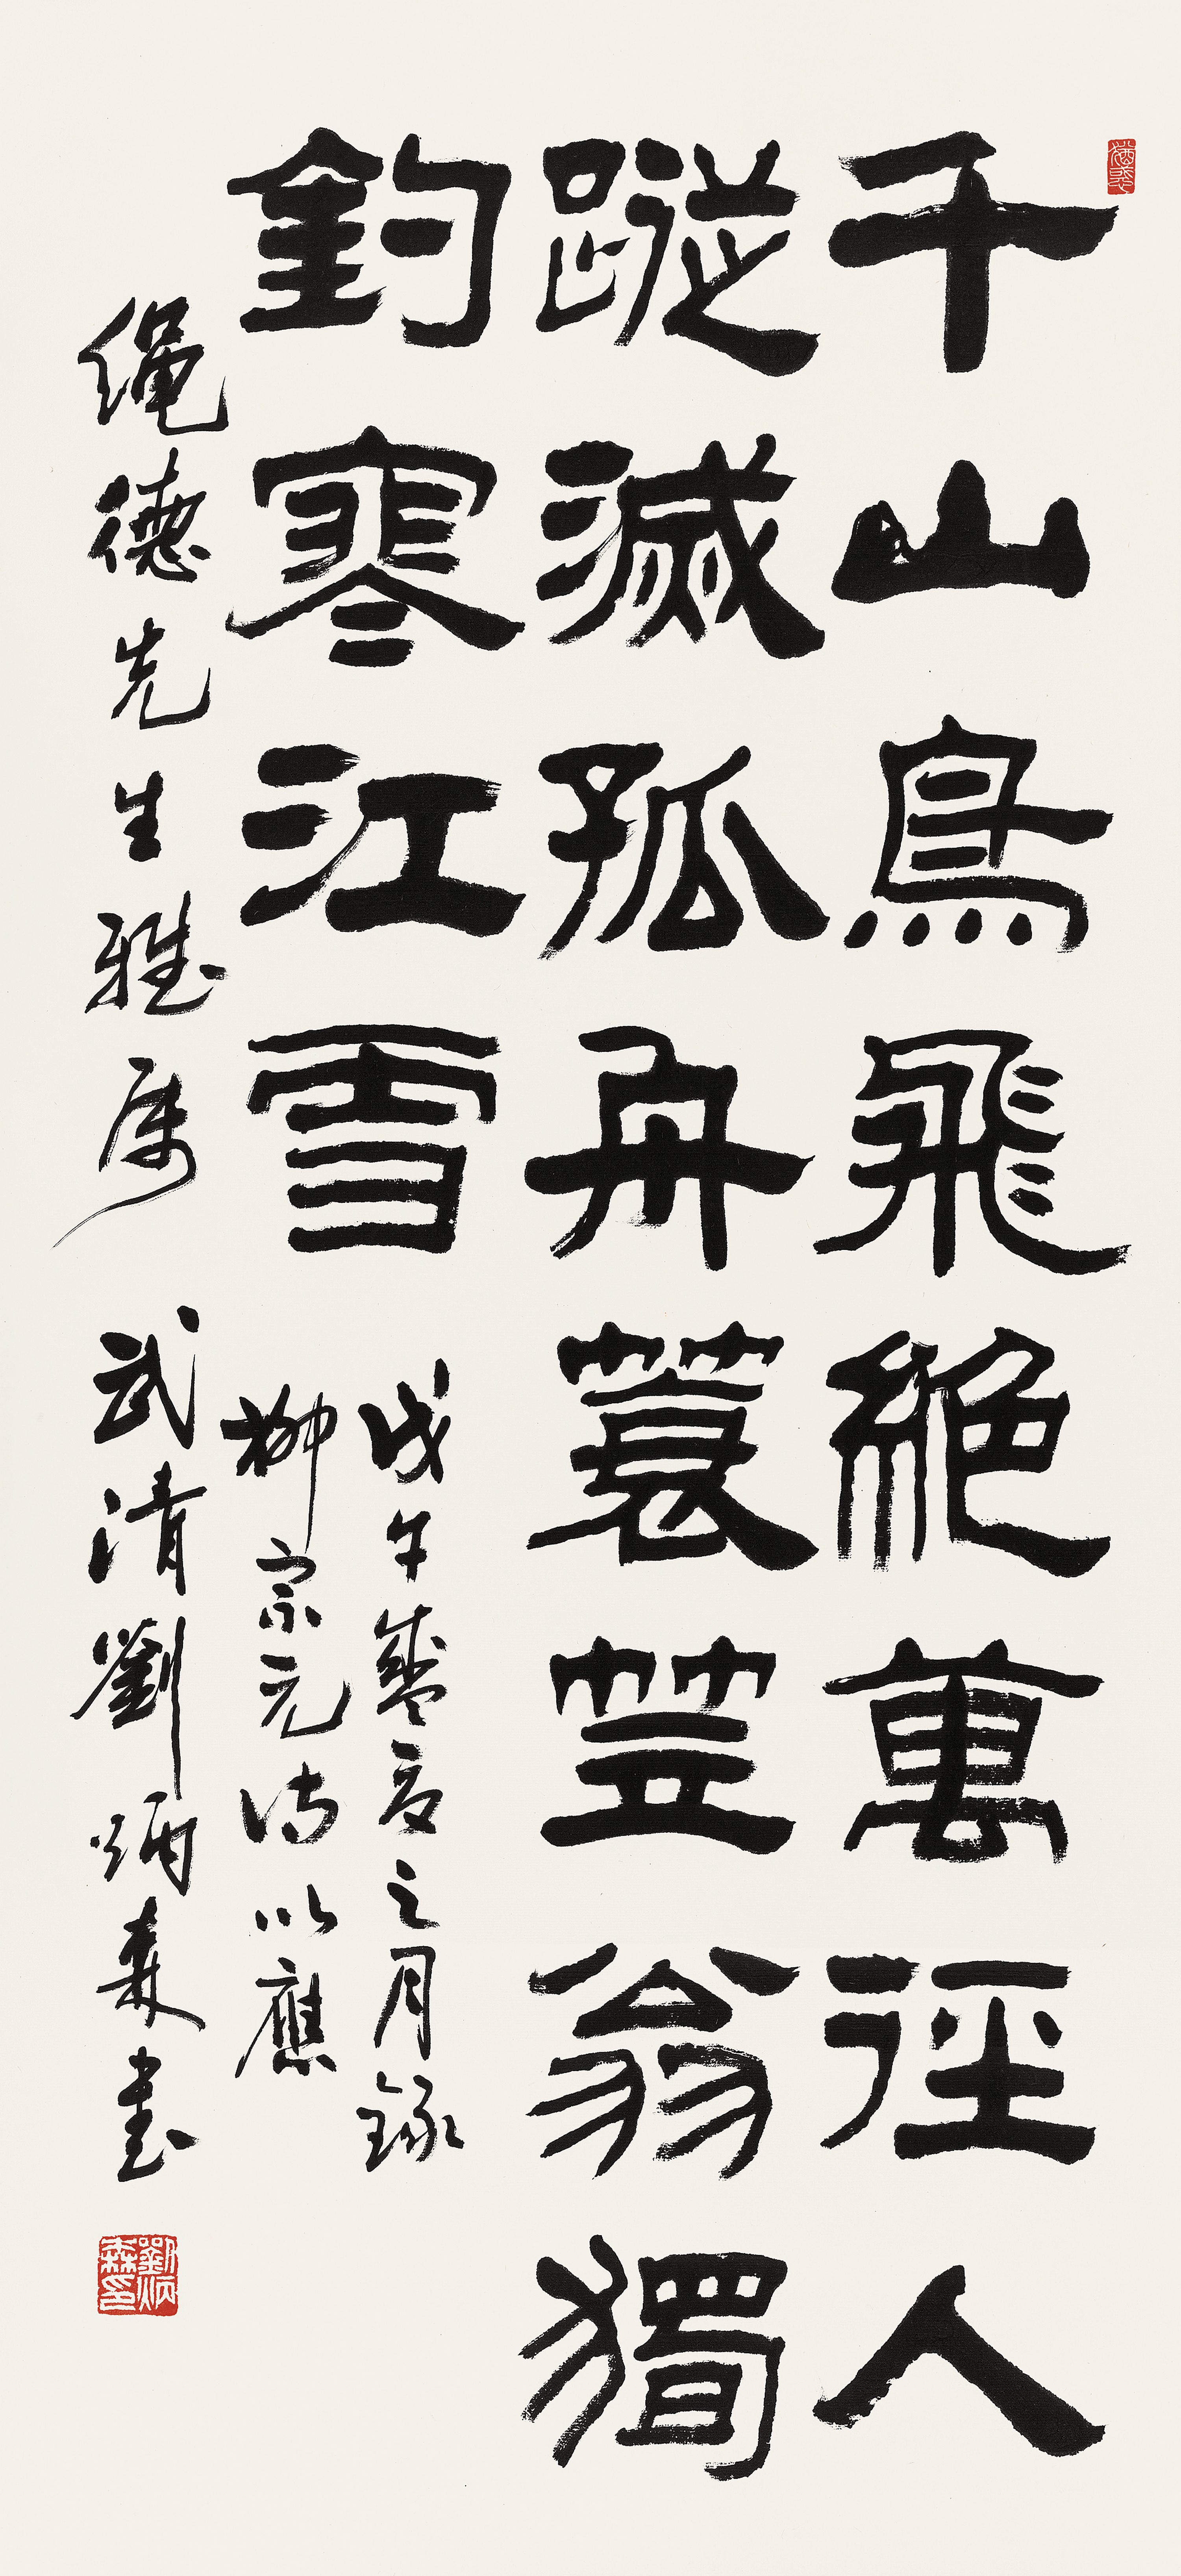 千山鳥飛絕萬徑人
蹤滅孤舟蓑笠翁獨
釣寒江雪
戊午盛夏之月録
柳宗元诗以應
绳德先生雅属
武清劉炳森書
劉炳森印